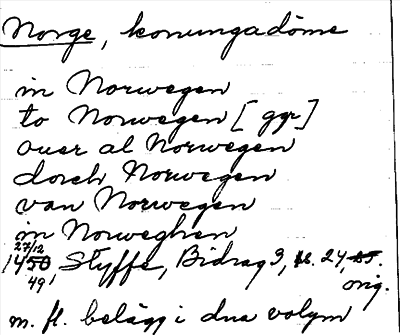 Norge, konungadöme
in Norwegen
to Norwegen [ggr]
ouer al Norwegen
dorch Norwegen
van Norwegen
in Norweghen
27/12
1450 Styffe, Bidrag 3, s. 24,
49
orig.
m. fl. belägg i dna volym